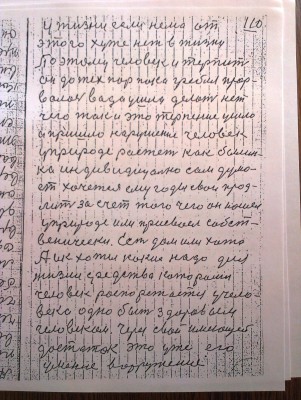 110
у жизни если нема от
этого хуже нет в жизни
Поэтому человек и терпит
он до тех пор пока гребля прор
валась вада ушла делат нет
чего так и это терпение ушло
и пришло нарушение человек
у природе растет как былин
ка индивидуално сам дума
ет хочется ему годы свои прод
лит за счет того чего он нашел
у природе или присвоел собст
венически. Ест дом или хата
А их хоти какие надо для
жизни средства каторами
человек распоряжается у чело
века одно быт здоровым
человекам через свой имеющей
достаток это уже его
умение вооружение